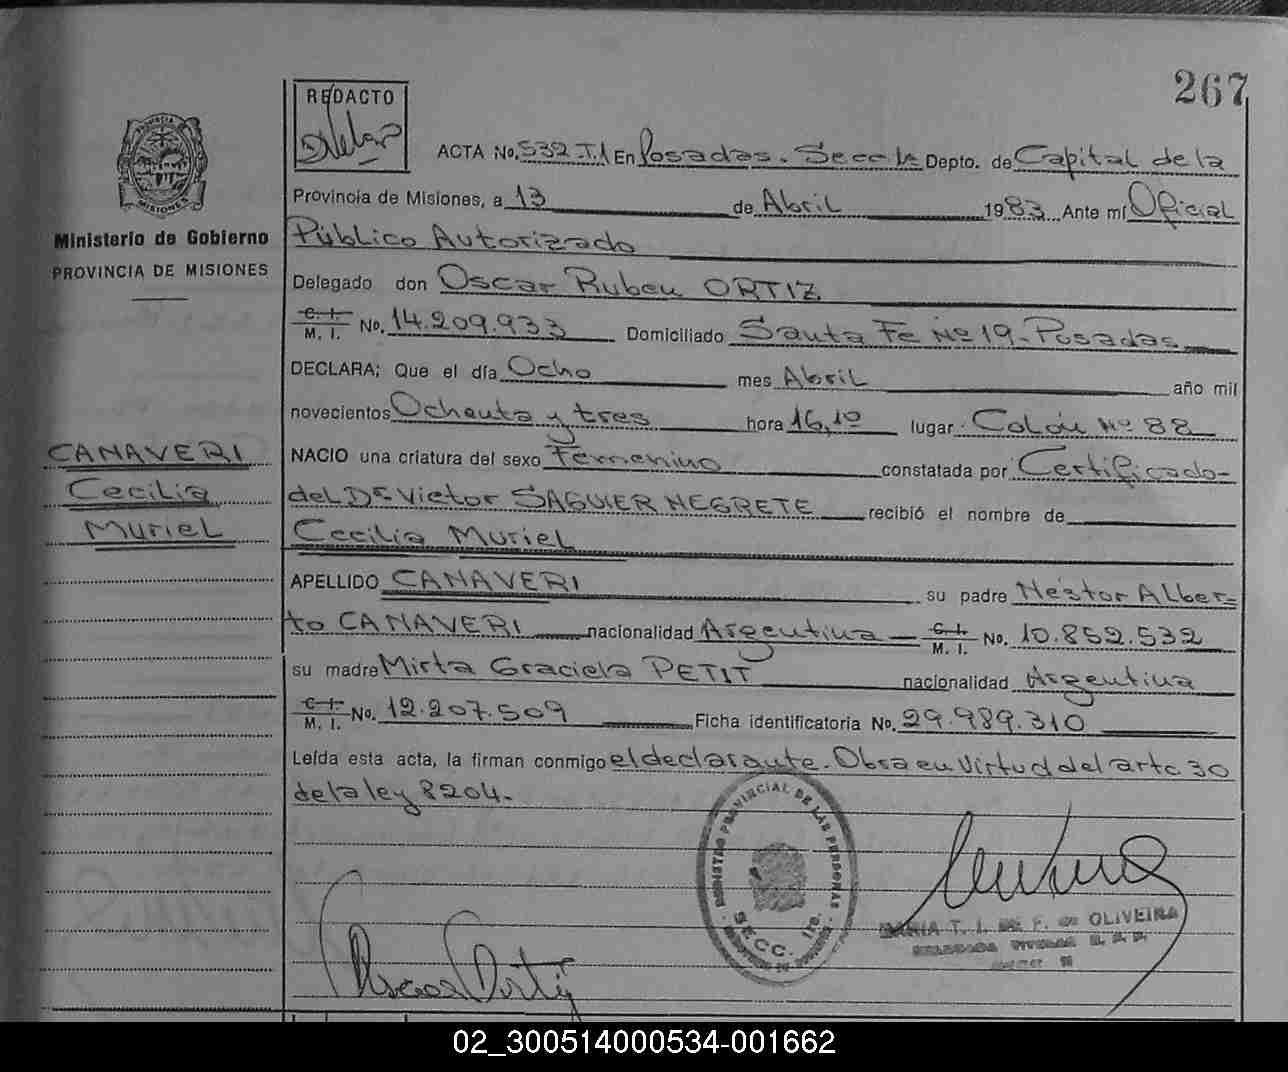 267
REDACTO
PROVINCIA DE
MISIONES
Ministerio de Gobierno
PROVINCIA DE MISIONES
ACTA No. 532-T.1 En Posadas. Secc 1ª Depto. de Capital de la
Provincia de Misiones, a 13 de Abril 1983 Ante mí Oficial
Público Autorizado
Delegado don Oscar Ruben ORTIZ
C. I.
M. I. No. 14.209.933 Domiciliado Santa Fe Nº 19-Posadas
DECLARA; Que el día Ocho mes Abril año mil
novecientos Ochenta y tres hora 16,10 lugar Colón Nº 88
NACIO una criatura del sexo Femenino constatada por Certificado-
del Dr Victor SAGUIER NEGRETE recibió el nombre de
Cecilia Muriel
CANAVERI
Cecilia
Muriel
APELLIDO CANAVERI su padre Néstor Alber-
to CANAVERI nacionalidad Argentina C. I.
M. I. No. 10.852.532
su madre Mirta Graciela PETIT nacionalidad Argentina
C. I.
M. I. No. 12.207.509 Ficha identificatoria No. 29.989.310
Leída esta acta, la firman conmigo el declarante. Obra en virtud del artc 30
de la ley 8204.-
REGISTRO PROVINCIAL DE LAS PERSONAS
SECC. 1ra.
MARIA T. I. DE F. de OLIVEIRA
DELEGADA TITULAR R. P. P.
Oscar Ortiz
02_300514000534-001662